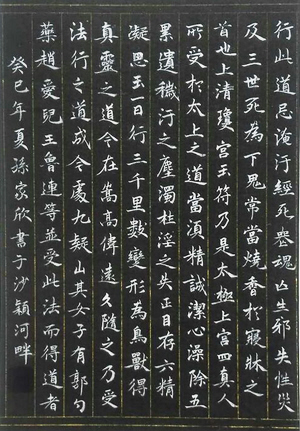 行此道忌淹汙經死喪魂亡生邪失性災
及三世死為下鬼常當燒香於寢牀之
首也上清瓊宮玉符乃是太極上宮四真人
所受於太上之道當須精誠潔心澡除五
累遺穢汙之塵濁杜淫之失正目存六精
凝思玉一日行三千里數變形為鳥獸得
真靈之道今在嵩高偉遠久隨之乃受
法行之道成今處九疑山其女子有郭勺
藥趙愛兒王魯連等並受此法而得道者
癸巳年夏孫家欣書于沙潁河畔